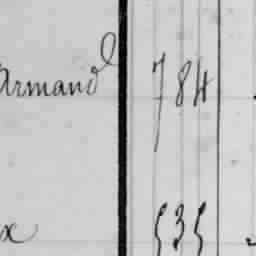 Armand 784
x 535